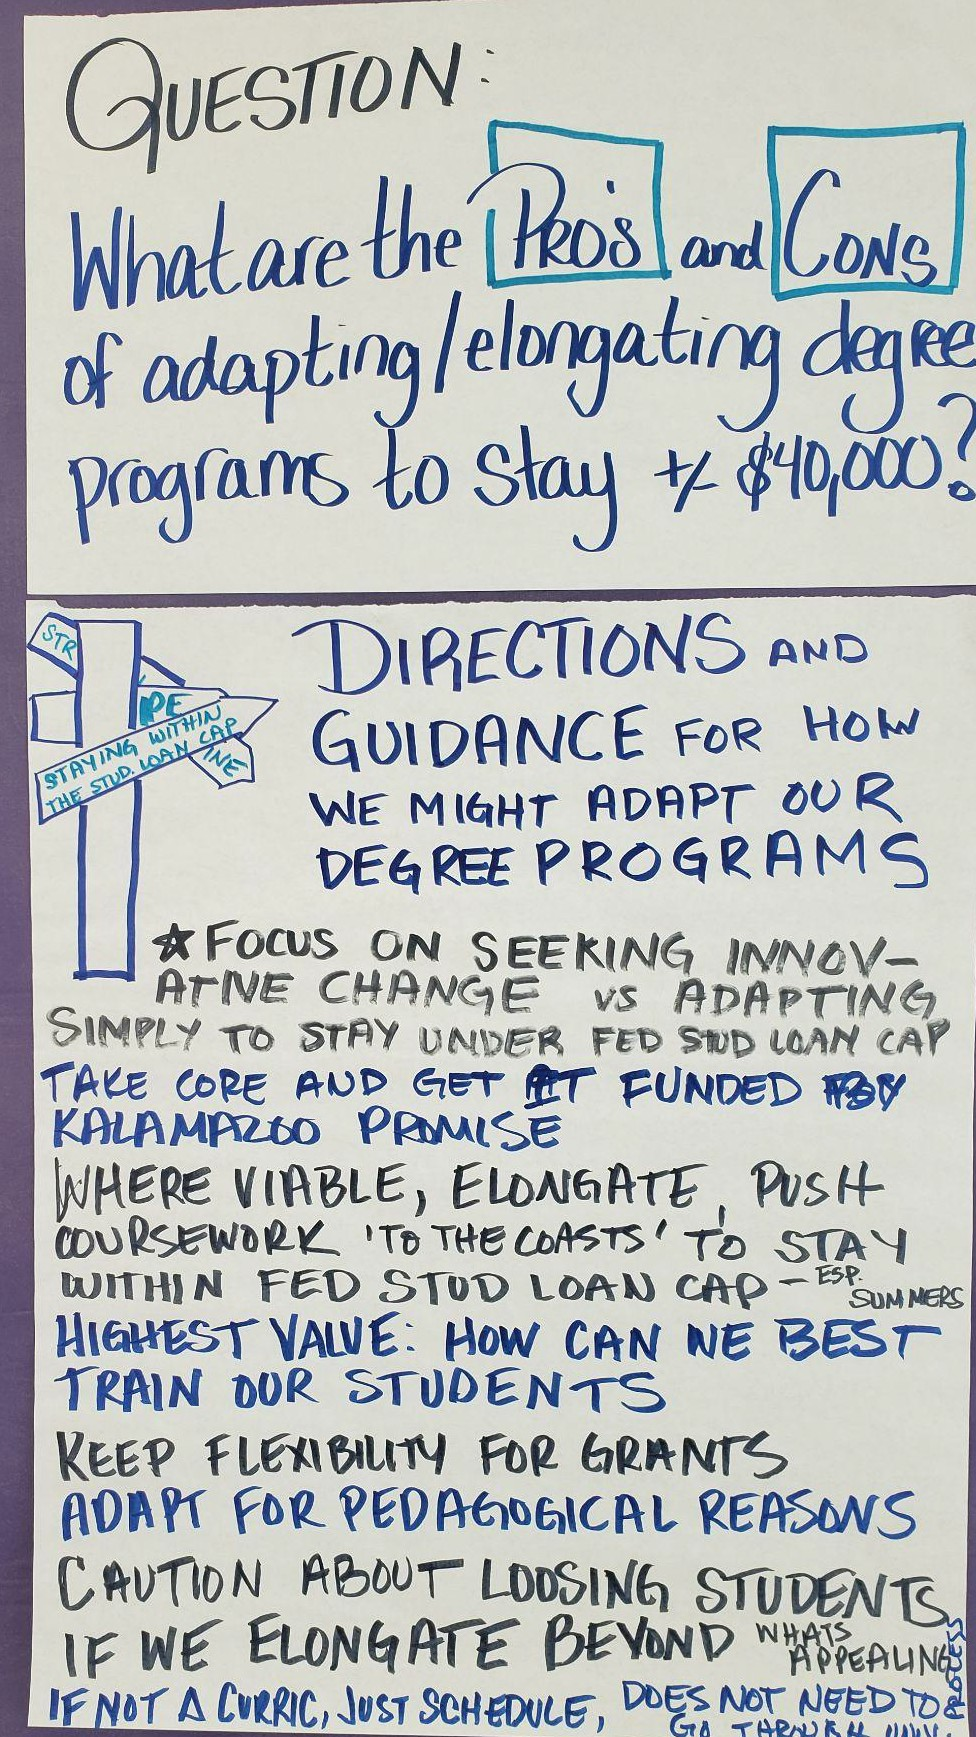 QUESTION:
What are the PRO'S and CONS
of adapting/elongating degree
programs to stay +/- $40,000?
STR
PE
STAYING WITHIN
THE STUD. LOAN CAP
INE
DIRECTIONS AND
GUIDANCE FOR HOW
WE MIGHT ADAPT OUR
DEGREE PROGRAMS
☆ FOCUS ON SEEKING INNOV-
ATIVE CHANGE VS ADAPTING
SIMPLY TO STAY UNDER FED STUD LOAN CAP
TAKE CORE AND GET IT FUNDED BY
KALAMAZOO PROMISE
WHERE VIABLE, ELONGATE, PUSH
COURSEWORK 'TO THE COASTS' TO STAY
WITHIN FED STUD LOAN CAP - ESP.
SUMMERS
HIGHEST VALUE: HOW CAN WE BEST
TRAIN OUR STUDENTS
KEEP FLEXIBILITY FOR GRANTS
ADAPT FOR PEDAGOGICAL REASONS
CAUTION ABOUT LOOSING STUDENTS
IF WE ELONGATE BEYOND WHATS
APPEALING
IF NOT A CURRIC, JUST SCHEDULE, DOES NOT NEED TO
GO THROUGH UNIV.
PROCESS